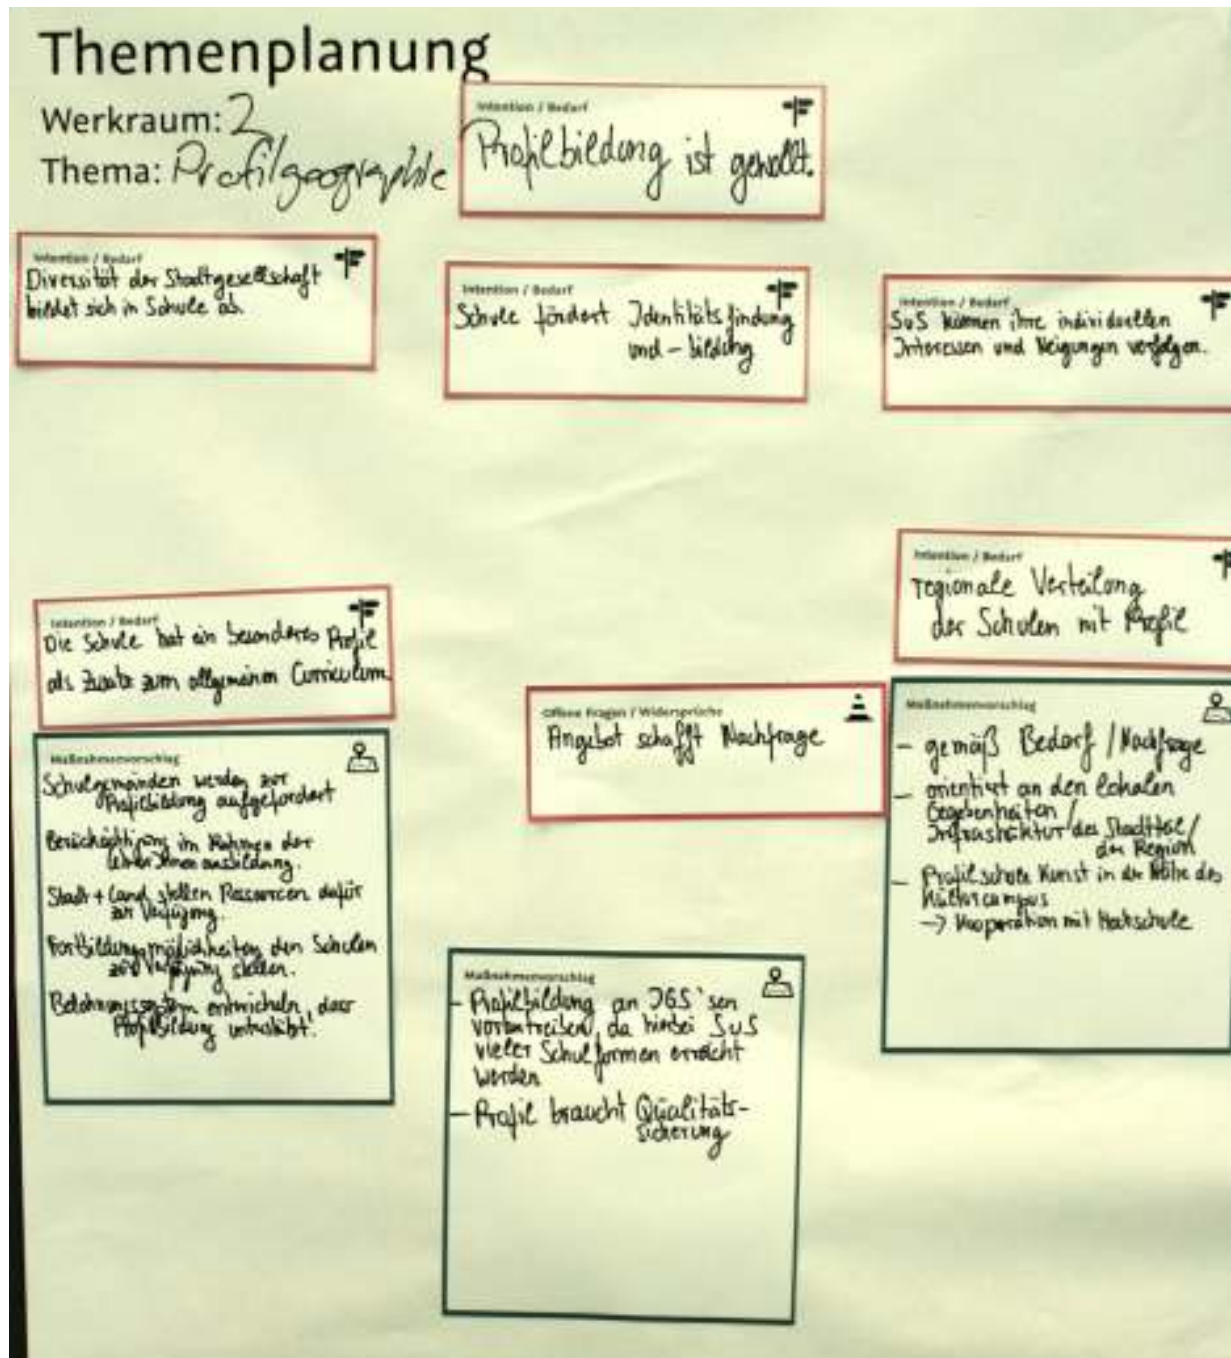 Themenplanung
Werkraum: 2
Thema: Profilgeographie
Intention / Bedarf
Profilbildung ist gewollt.
Intention / Bedarf
Diversität der Stadtgesellschaft
bildet sich in Schule ab.
Intention / Bedarf
Schule fördert Identitätsfindung
und -bildung
Intention / Bedarf
SuS können ihre individuellen
Interessen und Neigungen verfolgen.
Intention / Bedarf
Die Schule hat ein besonderes Profil
als Zusatz zum allgemeinen Curriculum
Maßnahmenvorschlag
Schulgemeinden werden zur
Profilbildung aufgefordert
Berücksichtigung im Rahmen der
LehrerInnenausbildung.
Stadt + Land stellen Ressourcen dafür
zur Verfügung.
Fortbildungsmöglichkeiten den Schulen
zur Verfügung stellen.
Belohnungssystem entwickeln, dass
Profilbildung unterstützt.
Offene Fragen / Widersprüche
Angebot schafft Nachfrage
Maßnahmenvorschlag
- Profilbildung an IGS'sen
vorantreiben, da hierbei SuS
vieler Schulformen erreicht
werden
- Profil braucht Qualitäts-
sicherung
Intention / Bedarf
regionale Verteilung
der Schulen mit Profil
Maßnahmenvorschlag
- gemäß Bedarf / Nachfrage
- orientiert an den lokalen
Gegebenheiten /
Infrastruktur des Stadtteil /
der Region
- Profilschule Kunst in der Nähe des
Kulturcampus
-> Kooperation mit Hochschule